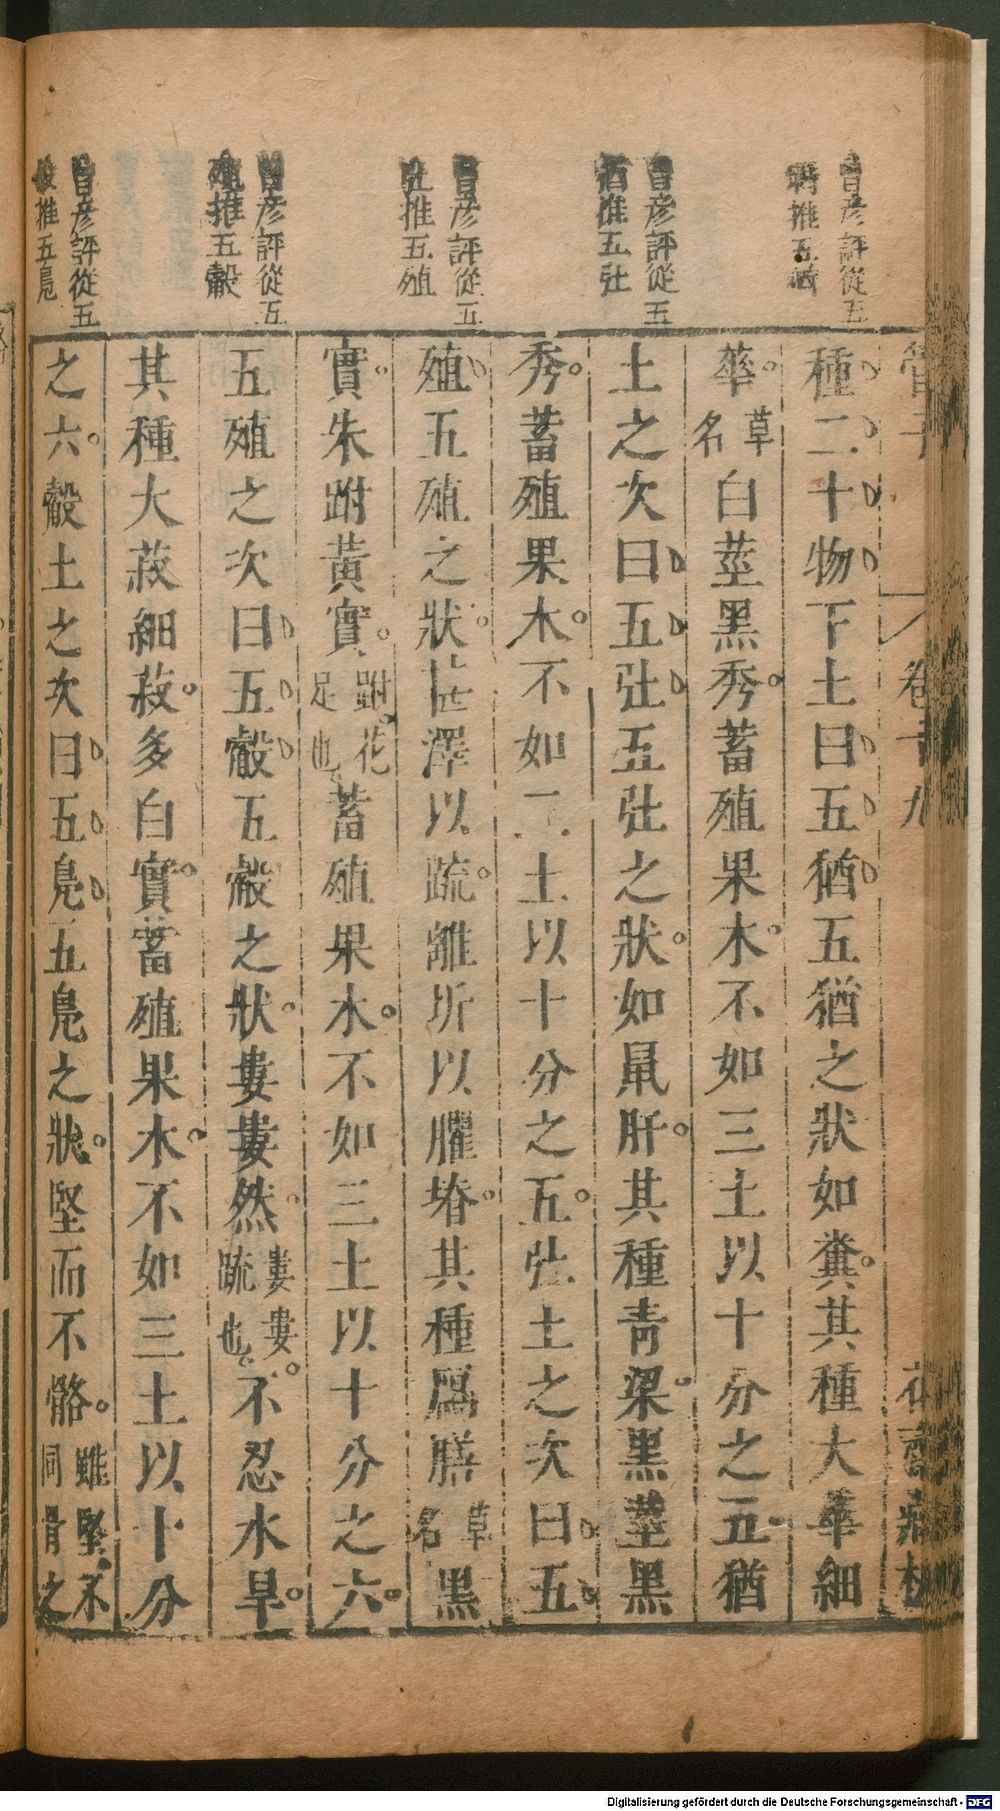 管子
卷十九
花齋藏板
曾彥評從五
推五猶
曾彥評從五
猶推五𡉄
曾彥評從五
推五殖
曾彥評從五
殖推五觳
曾彥評從五
觳推五鳧
種二十物下土曰五猶五猶之狀如糞其種大華細
華草名白莖黑秀蓄殖果木不如三土以十分之五猶
土之次曰五𡉄五𡉄之狀如鼠肝其種青粱黑莖黑
秀蓄殖果木不如三土以十分之五𡉄土之次曰五
殖五殖之狀甚澤以疏離坼以臞塉其種鴈膳草名黑
實朱跗黃實跗花足也蓄殖果木不如三土以十分之六
五殖之次曰五觳五觳之狀婁婁然婁婁疏也不忍水旱
其種大菽細菽多白實蓄殖果木不如三土以十分
之六觳土之次曰五鳧五鳧之狀堅而不骼雖堅不同骨之
Digitalisierung gefördert durch die Deutsche Forschungsgemeinschaft - DFG